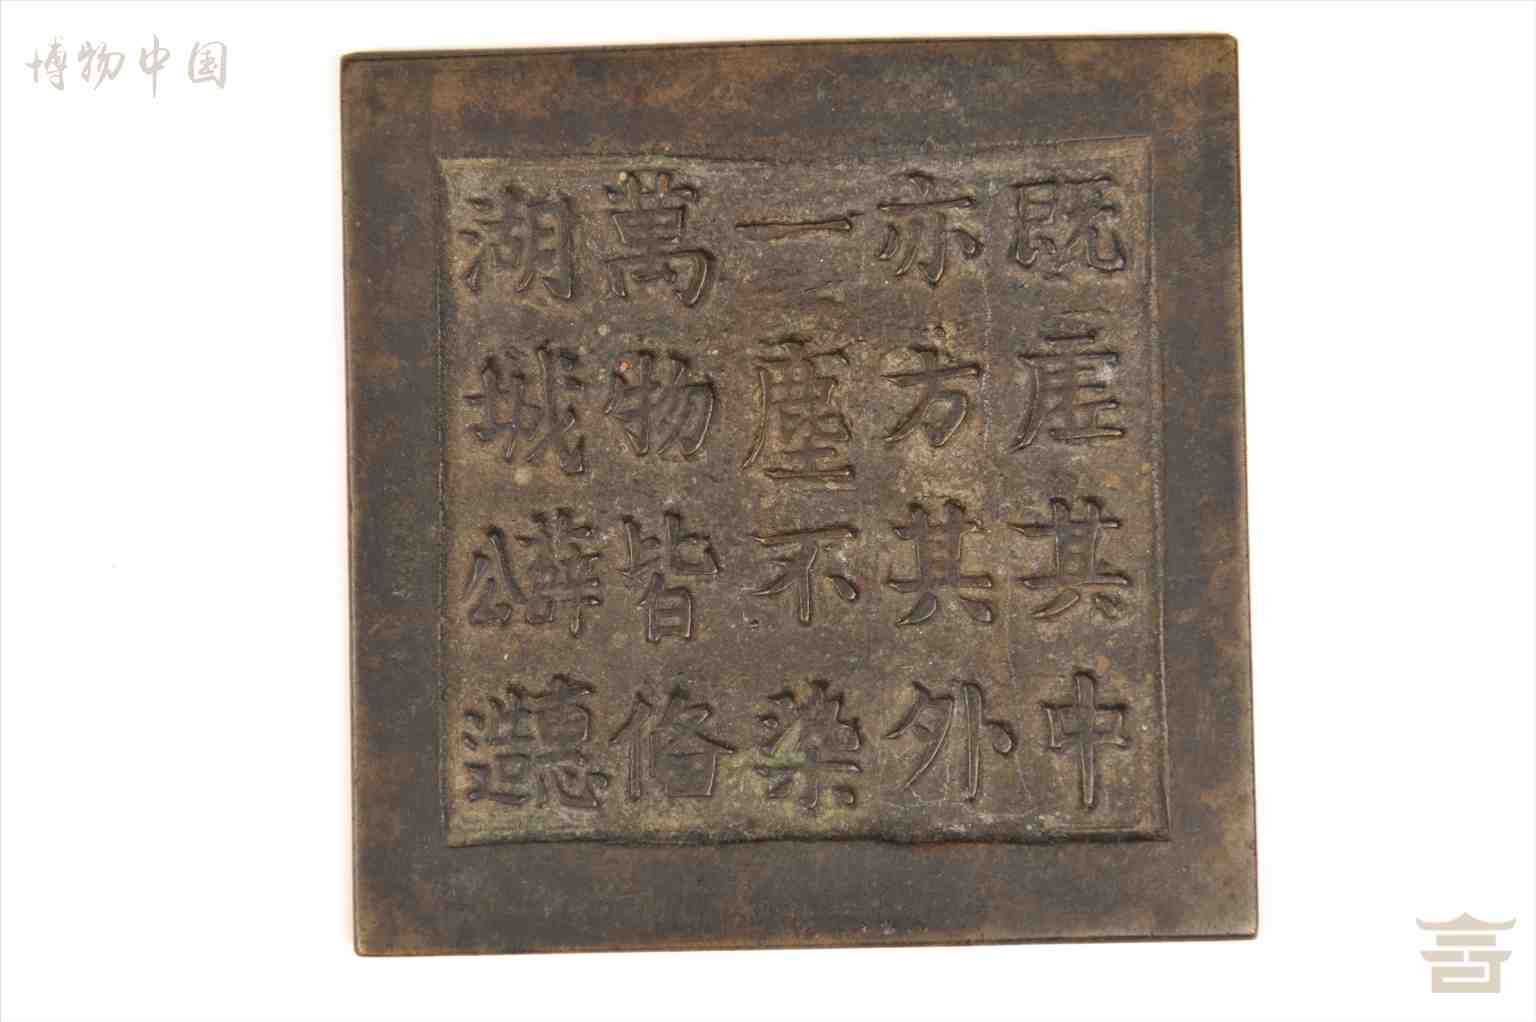 博物中国
既虚其中
亦方其外
一塵不染
萬物皆俻
湖城薛惠公造